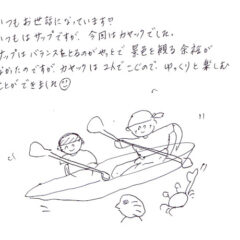 いつもお世話になっています!!
いつもはサップですが、今回はカヤックでした。
サップはバランスをとるのがやっとで 景色を観る余裕が
なかたのですが、カヤックは2人でこぐので、ゆっくりと楽しむ
ことができました